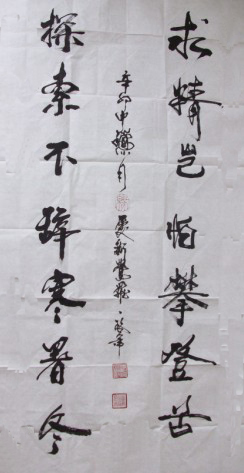 求精岂怕攀登苦
探索不辞寒暑冬
辛卯中
月爱新觉罗